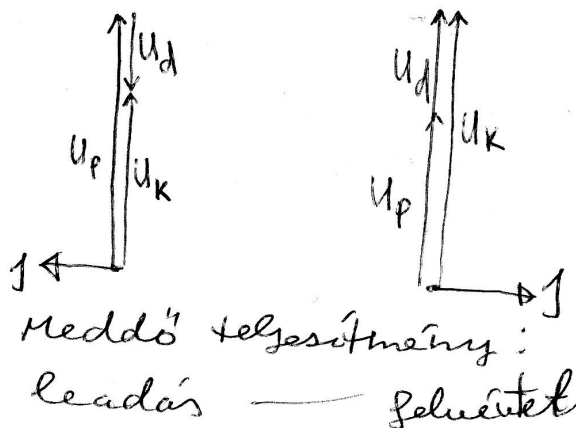 U_d U_d
U_p U_k U_p U_k
J J
Meddő teljesítmény:
leadás — felvétel